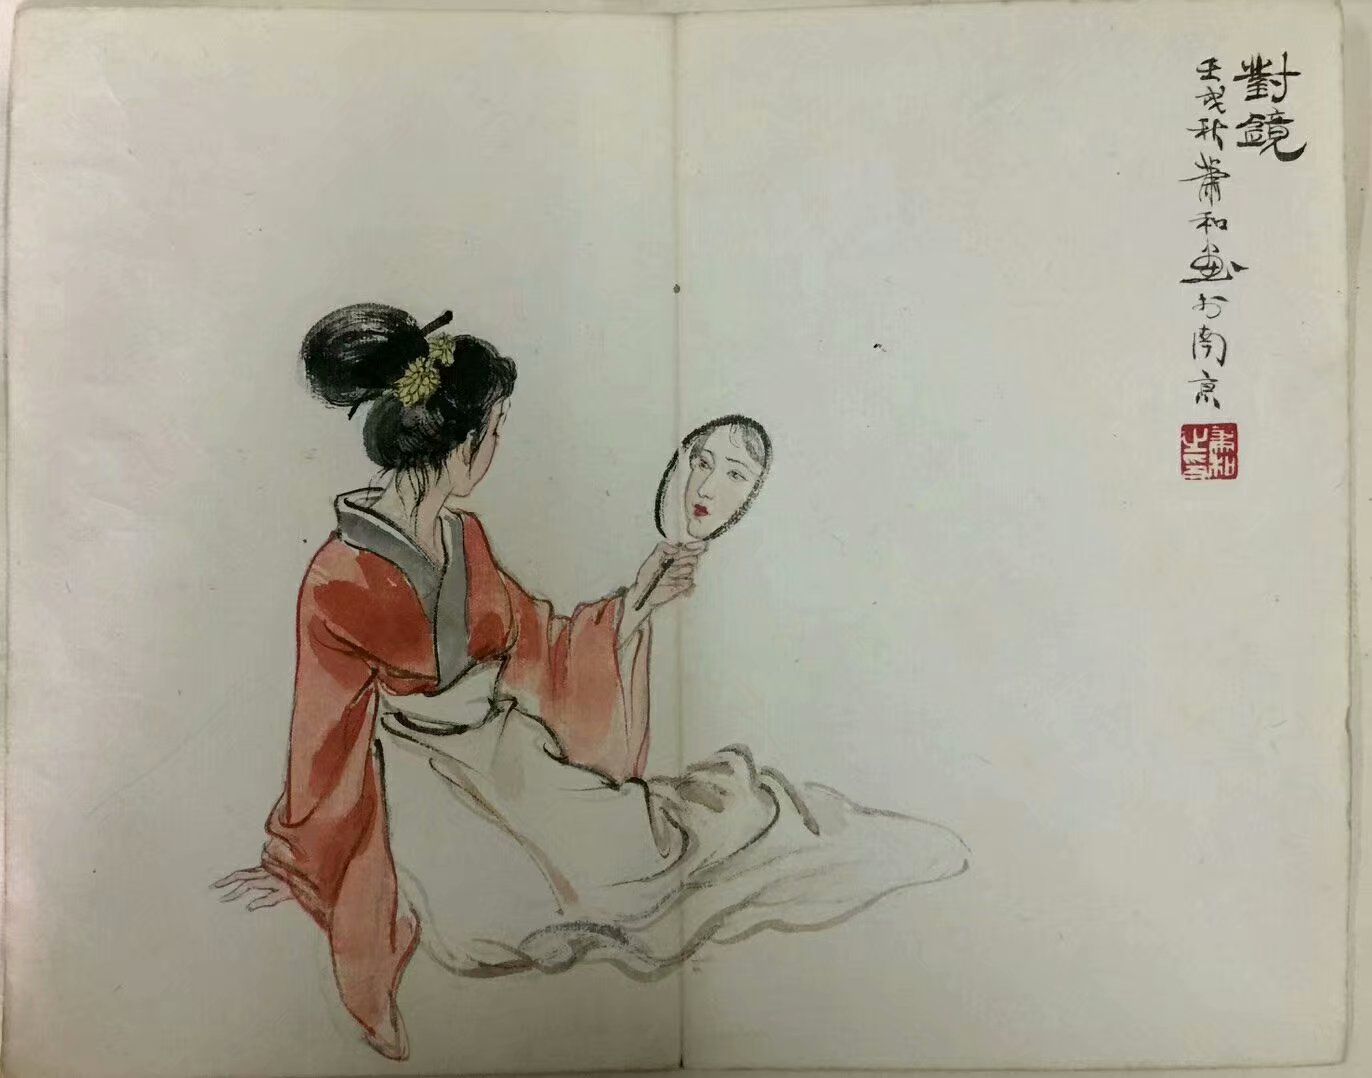 對鏡
壬戌秋蕭和畫於南京
蕭和之印